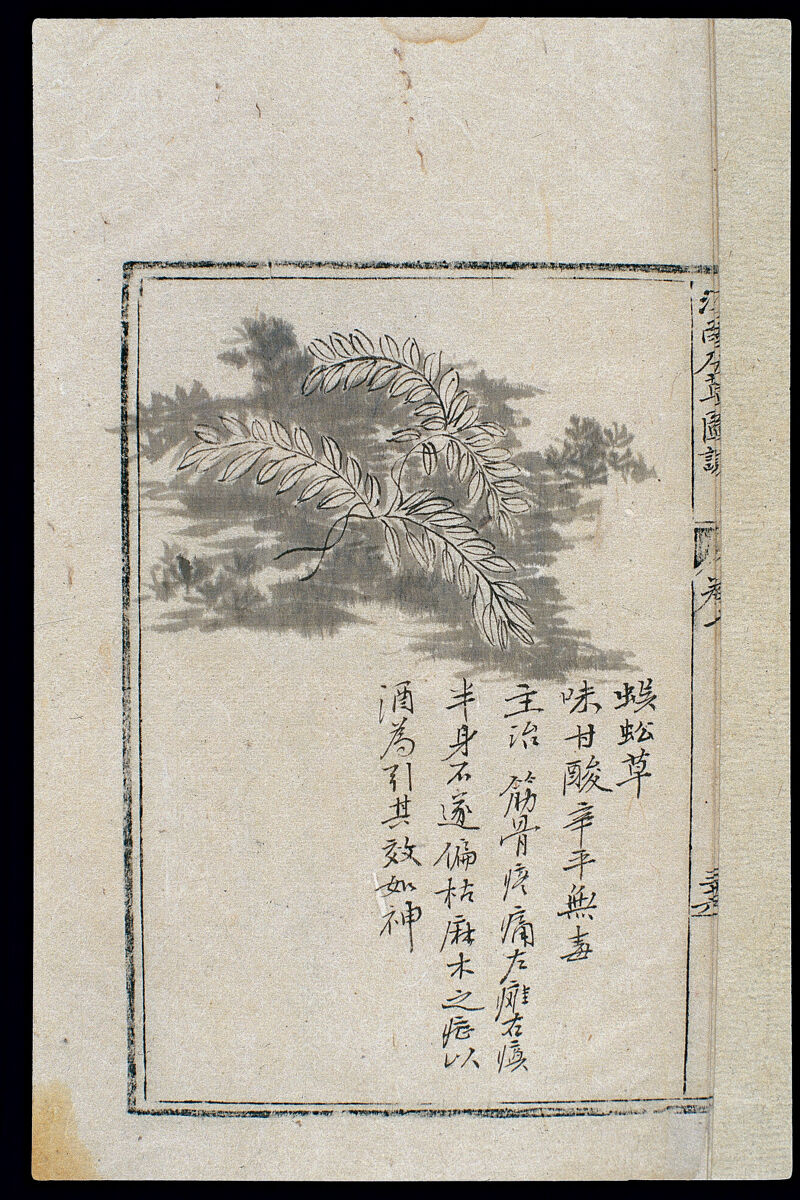 蜈蚣草
味甘酸辛平無毒
主治 筋骨疼痛左癱右瘓
半身不遂偏枯麻木之症以
酒為引其效如神
卷一